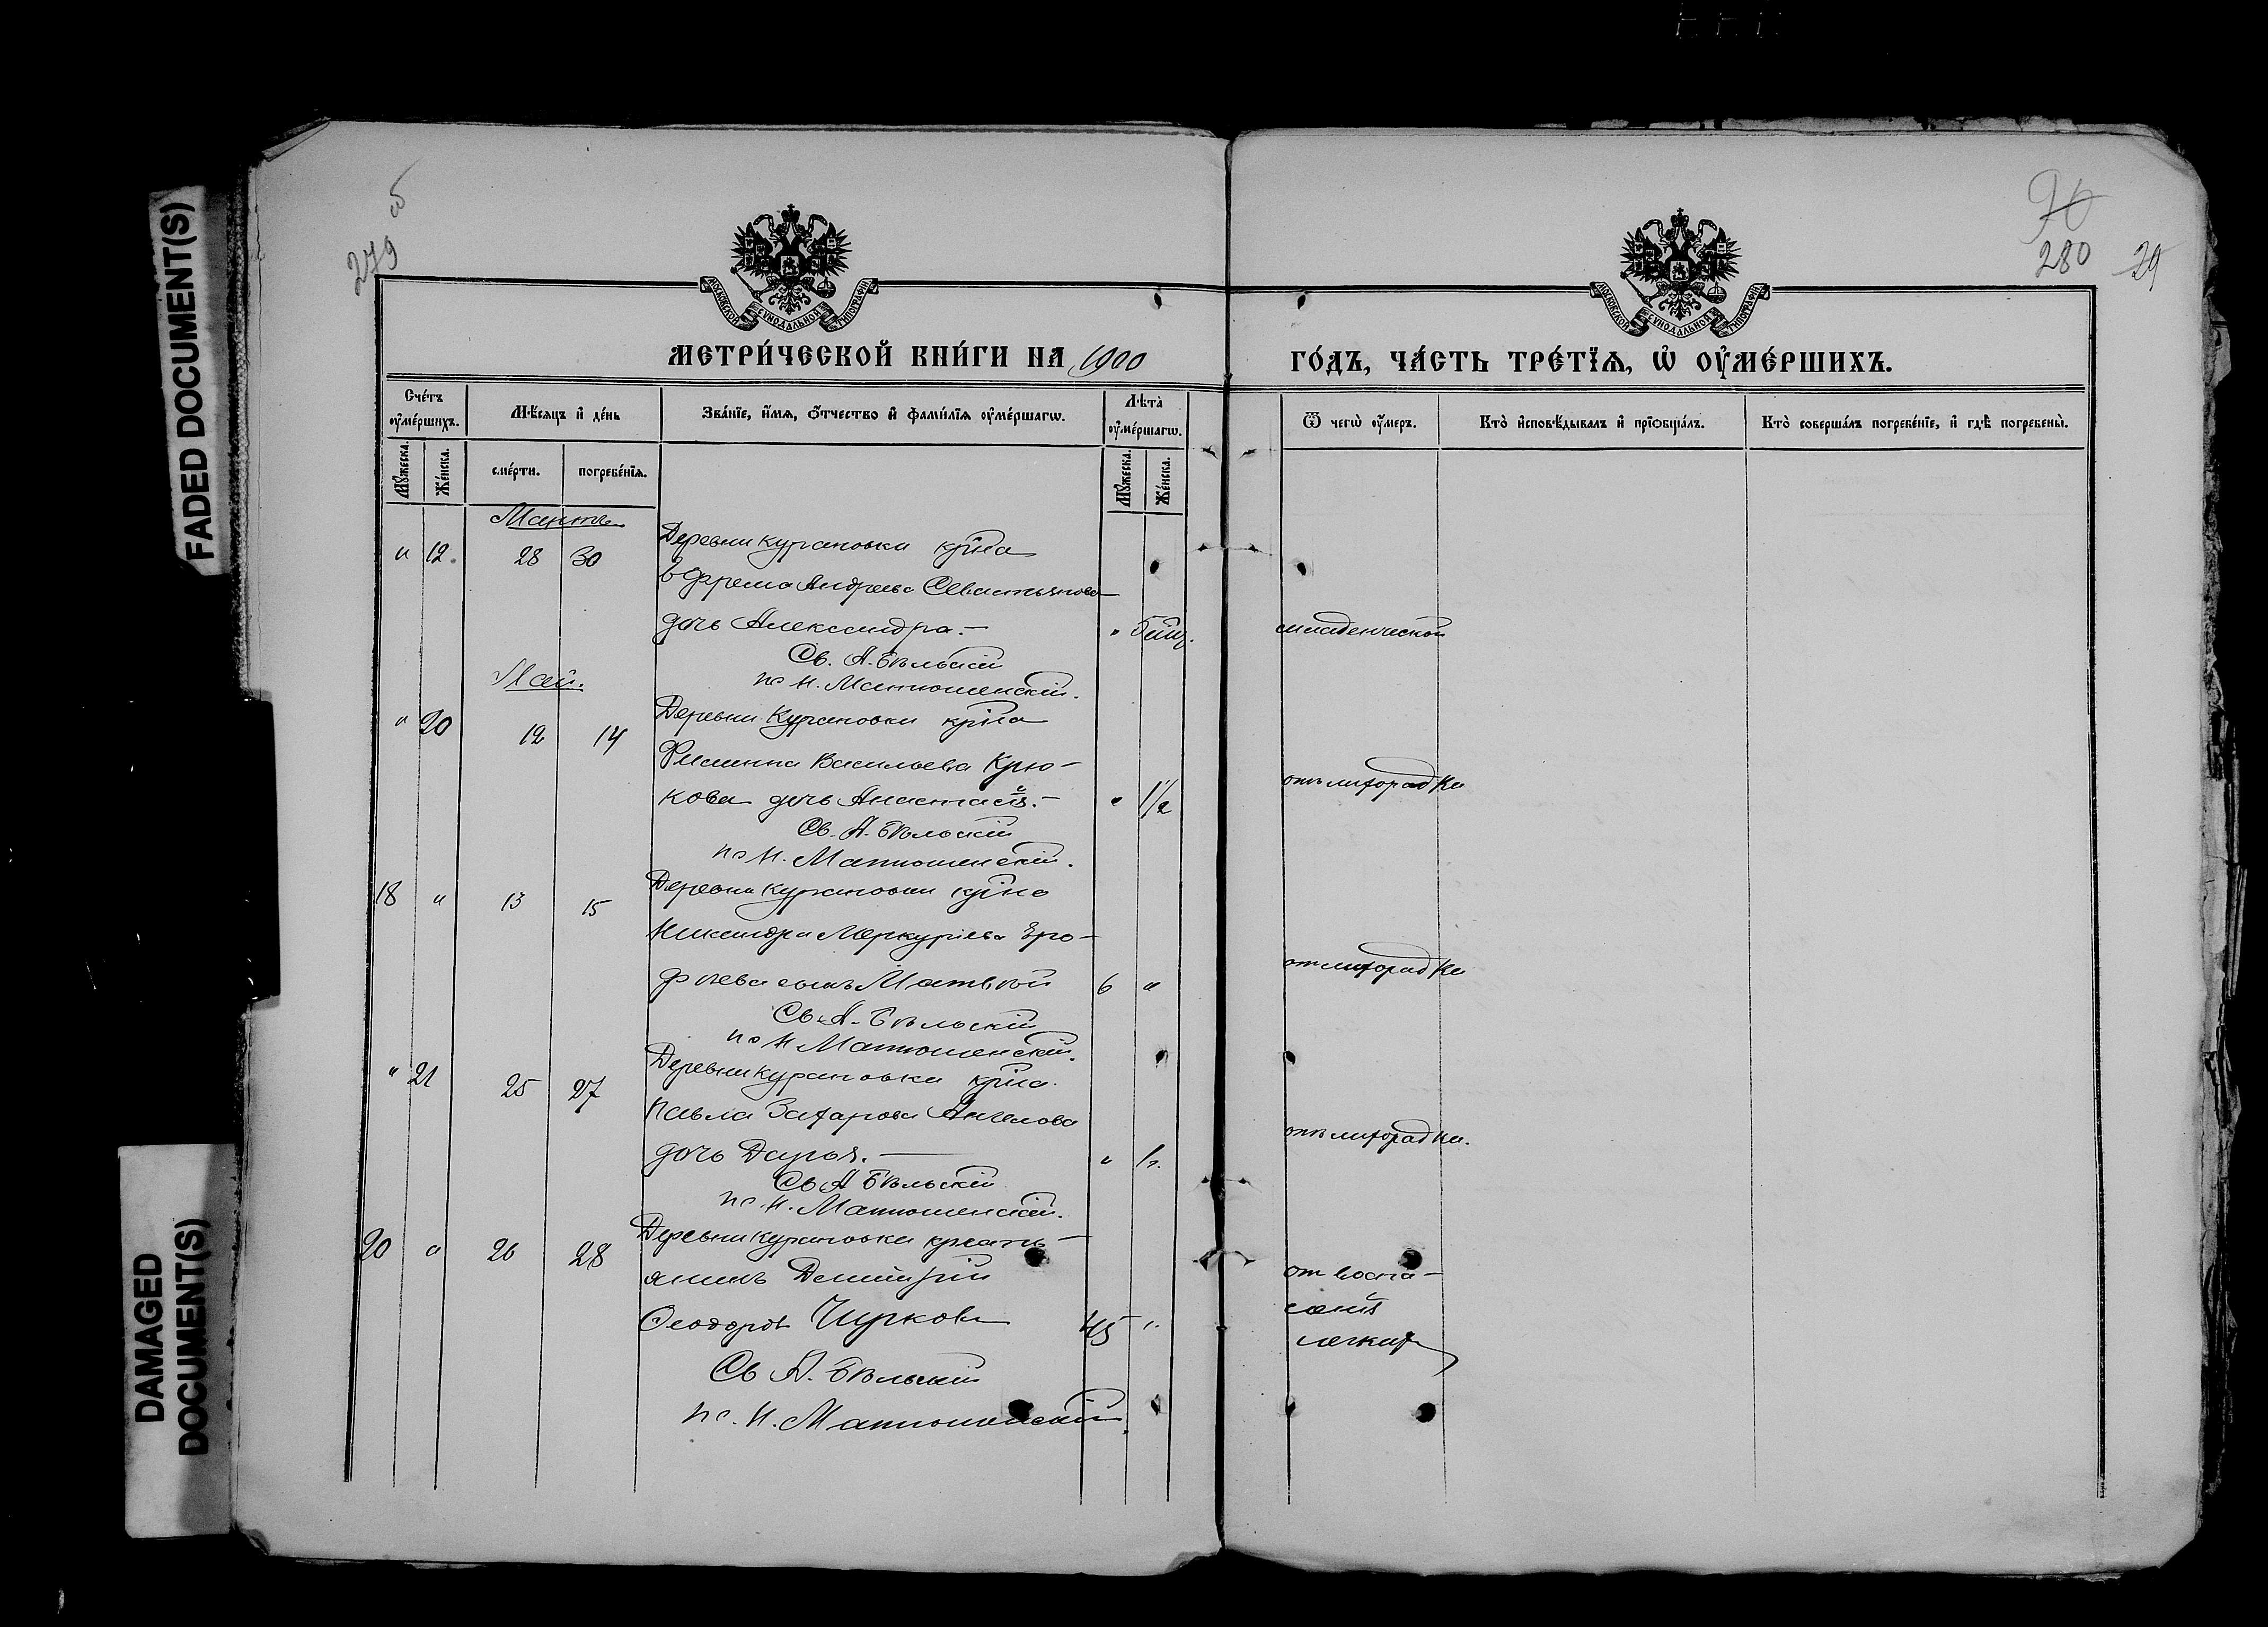 FADED DOCUMENT(S)
DAMAGED
DOCUMENT(S)
279 об
МОСКОВСКОЙ СУНОДАЛЬНОЙ ТИПОГРАФІИ
МЕТРИ́ЧЕСКОЙ КНИ́ГИ НА 1900
Сче́тъ оу҆ме́ршихъ.
Мꙋ́жеска.
Же́нска.
Мѣ́сяцъ и҆ де́нь
сме́рти.
погребе́нїѧ.
Зва́нїе, и҆́мѧ, ѻ҆́тчество и҆ фами́лїѧ оу҆ме́ршагѡ.
Лѣ́та̀ оу҆ме́ршагѡ.
Мꙋ́жеска.
Же́нска.
Марта
" 12. 28 30 Деревни Курановки кр-ина
Ефрема Андреева Севастьянова
дочь Александра. — "
Св. А. Бѣльскій
пс Н. Матюшенскій.
Май.
" 20 12 14 Деревни Курановки кр-ина
Филиппа Васильева Крю-
кова дочь Анастасія. — " 1½
Св. А. Бѣльскій
пс Н. Матюшенскій.
18 " 13 15 Деревни Курановки кр-ина
Никандра Меркуріева Еро-
феева сынъ Матвѣй 6 "
Св. А. Бѣльскій
пс Н Матюшенскій.
" 21 25 27 Деревни Курановки кр-ина.
Павла Захарова Ангелова
дочь Дарья. — " 1 г.
Св А Бѣльскій
пс. Н. Матюшенскій.
20 " 26 28 Деревни Курановки кресть-
янинъ Димитрій
Ѳеодоровъ Чурковъ 45 "
Св А. Бѣльскій
пс. Н. Матюшенскій.
280 29
МОСКОВСКОЙ СУНОДАЛЬНОЙ ТИПОГРАФІИ
ГО́ДЪ, ЧА́СТЬ ТРЕ́ТЇѦ, Ѡ҆ ОУ҆МЕ́РШИХЪ.
Ѿ чегѡ̀ оу҆́меръ.
Кто̀ и҆сповѣ́дывалъ и҆ прїѡбща́лъ.
Кто̀ соверша́лъ погребе́нїе, и҆ гдѣ̀ погребены̀.
младенческой
отъ лихорадки
от лихорадки
отъ лихорадки.
от воспа-
ленія
легкихъ